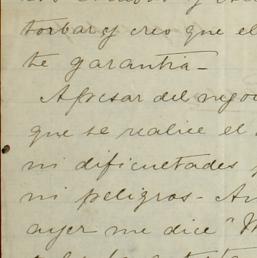 torbar y creo que el
te garantia -
A pesar del nego
que se realice el
ni dificultades
ni peligros - An
ayer me dice "